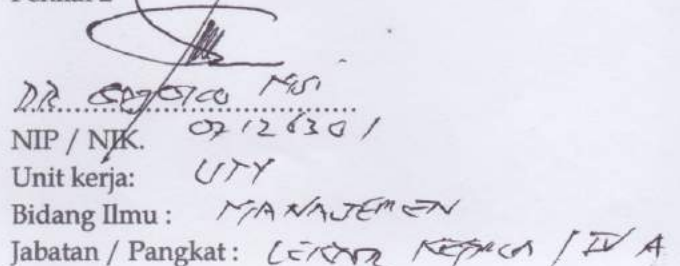 DR. MSi
NIP / NIK. 07126301
Unit kerja: UTY
Bidang Ilmu : MANAJEMEN
Jabatan / Pangkat : LEKTOR KEPALA / IV A